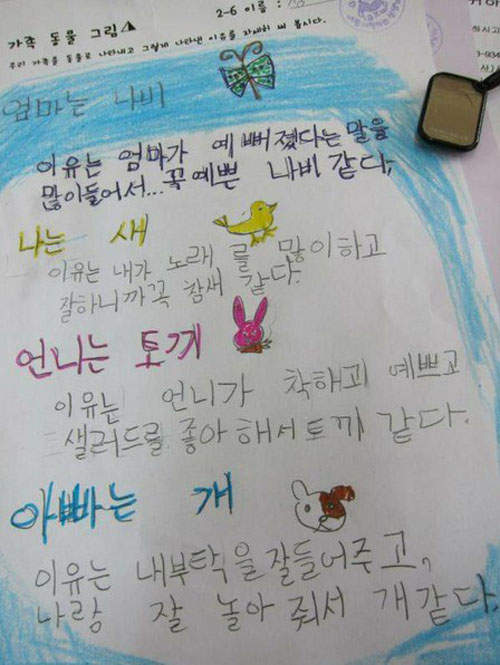 2-6 이름 :
가족 동물 그림
우리 가족을 동물로 나타내고 그렇게 나타낸 이유를 자세히 써 봅시다.
엄마는 나비
이유는 엄마가 예뻐졌다는 말을
많이들어서...꼭예쁜 나비 같다,
나는 새
이유는 내가 노래 를 많이하고
잘하니까꼭 참새 같다.
언니는 토끼
이유는 언니가 착하고 예쁘고
샐러드를 좋아해서토끼 같다.
아빠는 개
이유는 내부탁을잘들어주고,
나랑 잘 놀아 줘서 개같다